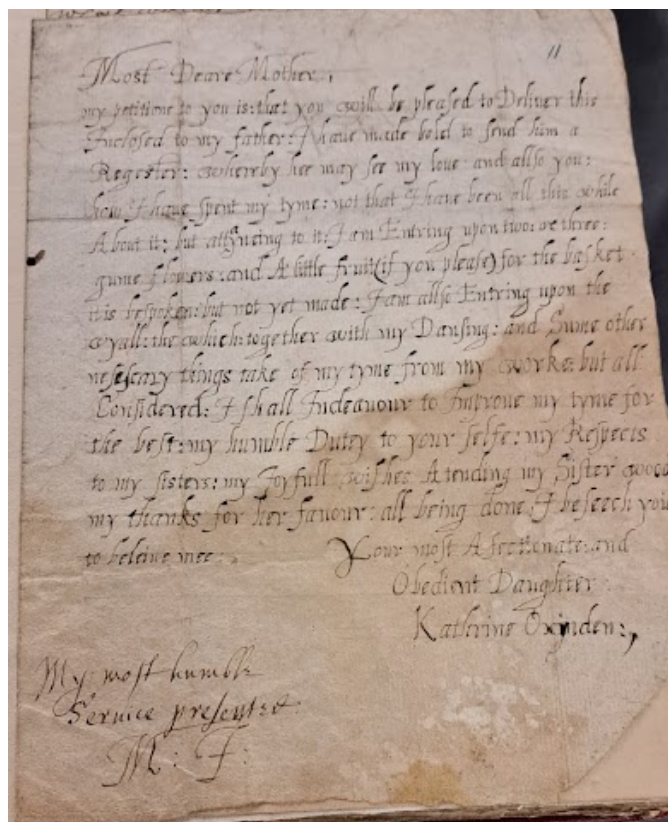 11
Most Deare Mother,
my petitione to you is: that you will be pleased to Deliver this
Inclosed to my father: I have made bold to send him a
Regester: whereby hee may see my love: and allso you:
how I have spent my tyme: not that I have been all this while
About it: but to it: I am Entring upon two: or three:
gume flowers: and A little fruit (if you please) for the basket
it is bespoken: but not yet made: I am allso Entring upon the
vyall: the which: together with my Dansing: and Sume other
nesescary things take of my tyme from my worke: but all
Considered: I shall Indeavour to Improve my tyme for
the best: my humble Dutey to your selfe: my Respects
to my sisters: my Joyfull wishes Atending my Sister
my thanks for her favour: all being done, I beseech you
to beleive mee:
Your most Afectionate: and
Obedient Daughter
Kathrine Oxinden:,
My most humble
Service presented
M: F: